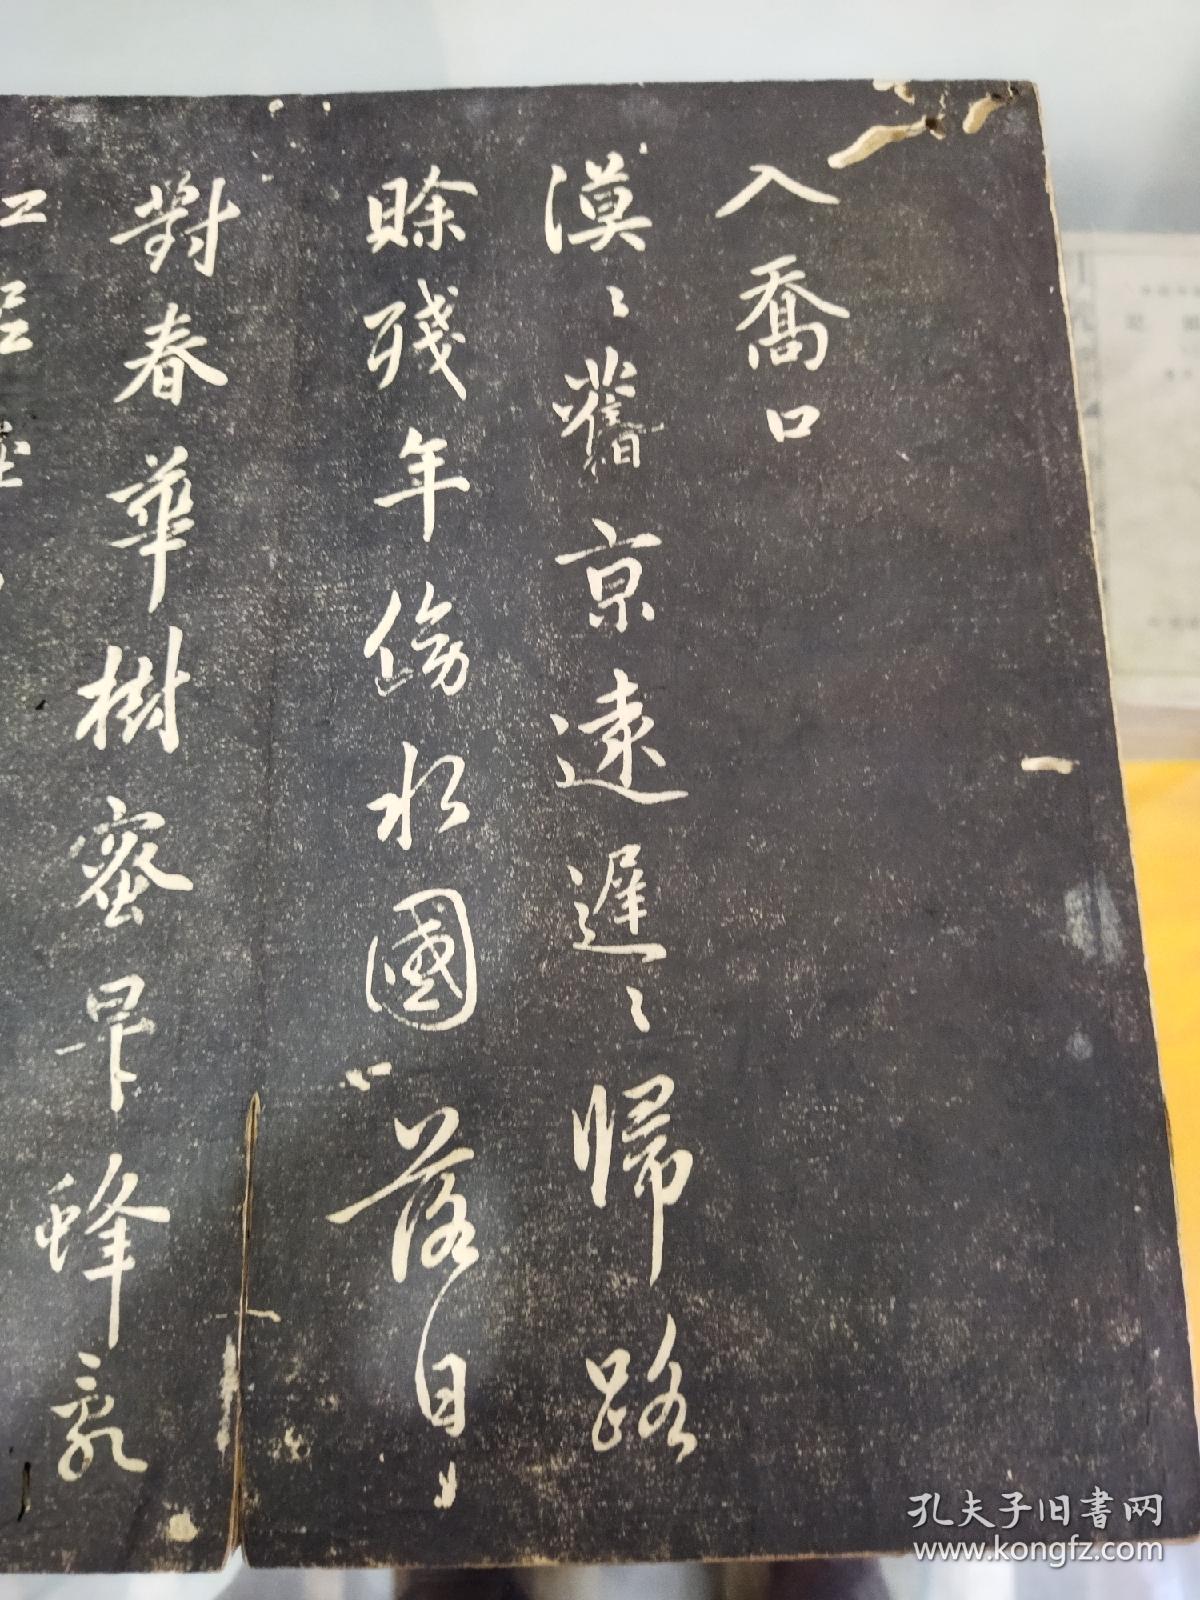 入喬口
漠〻舊京遠遲〻歸路
賒殘年傍水國落日
對春華樹蜜早蜂亂
孔夫子旧書网
www.kongfz.com